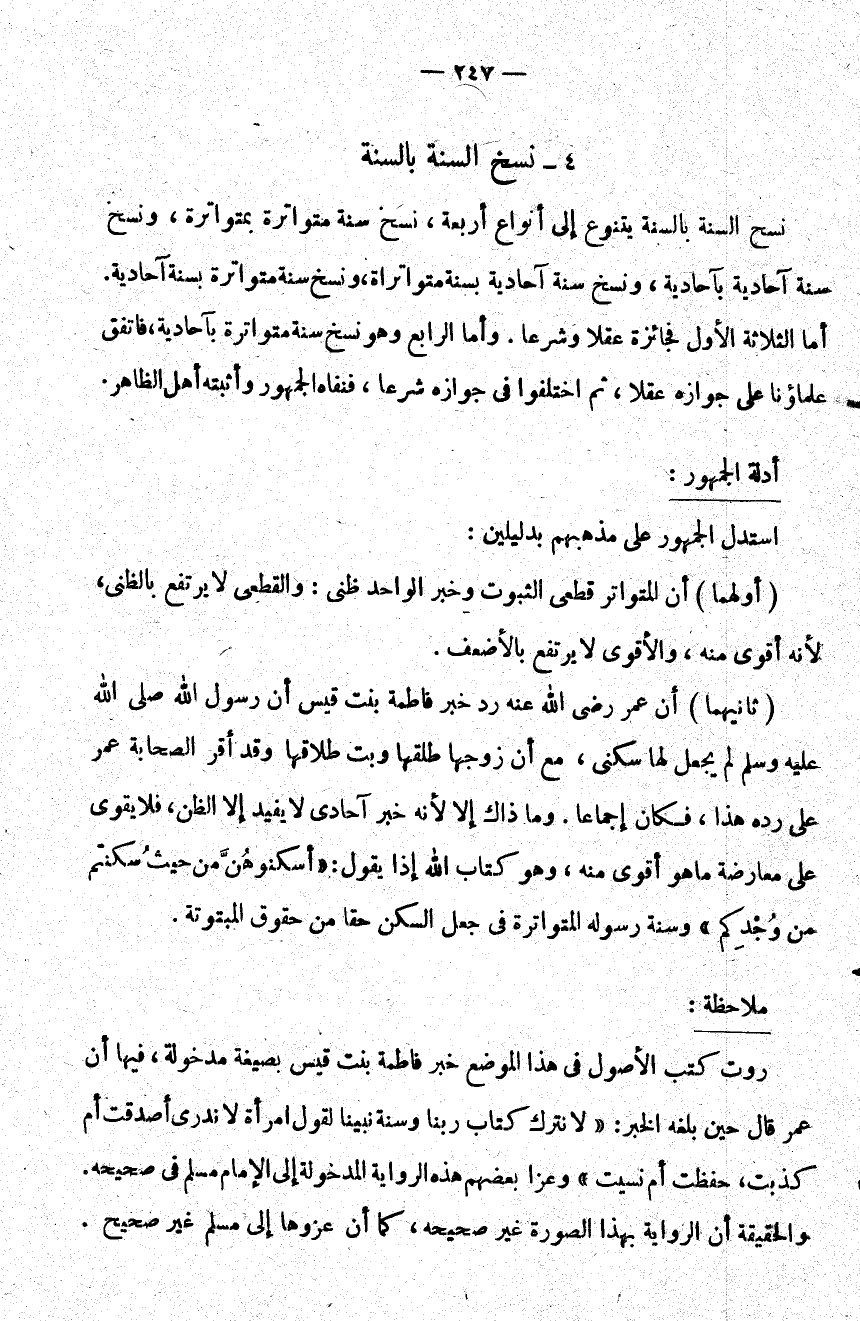 — ٢٤٧ —
٤ - نسخ السنة بالسنة
نسخ السنة بالسنة يتنوع إلى أنواع أربعة ، نسخ سنة متواترة بمتواترة ، ونسخ
سنة آحادية بآحادية ، ونسخ سنة آحادية بسنة متواتراة، ونسخ سنة متواترة بسنة آحادية.
أما الثلاثة الأول فجائزة عقلا وشرعا . وأما الرابع وهو نسخ سنة متواترة بآحادية، فاتفق
علماؤنا على جوازه عقلا ، ثم اختلفوا فى جوازه شرعا ، فنفاه الجمهور وأثبته أهل الظاهر.
أدلة الجمهور :
استدل الجمهور على مذهبهم بدليلين :
( أولهما ) أن المتواتر قطعى الثبوت وخبر الواحد ظنى : والقطعى لا يرتفع بالظنى،
لأنه أقوى منه ، والأقوى لا يرتفع بالأضعف .
( ثانيهما ) أن عمر رضى الله عنه رد خبر فاطمة بنت قيس أن رسول الله صلى الله
عليه وسلم لم يجعل لها سكنى ، مع أن زوجها طلقها وبت طلاقها وقد أقر الصحابة عمر
على رده هذا ، فكان إجماعا . وما ذاك إلا لأنه خبر آحادى لا يفيد إلا الظن، فلا يقوى
على معارضة ماهو أقوى منه ، وهو كتاب الله إذا يقول: «أسكنوهُنَّ من حيثُ سكنتم
من وُجْدِكم » وسنة رسوله المتواترة فى جعل السكن حقا من حقوق المبتوتة .
ملاحظة :
روت كتب الأصول فى هذا الموضع خبر فاطمة بنت قيس بصيغة مدخولة ، فيها أن
عمر قال حين بلغه الخبر: « لا نترك كتاب ربنا وسنة نبينا لقول امرأة لا ندرى أصدقت أم
كذبت، حفظت أم نسيت » وعزا بعضهم هذه الرواية المدخولة إلى الإمام مسلم فى صحيحه.
والحقيقة أن الرواية بهذا الصورة غير صحيحه ، كما أن عزوها إلى مسلم غير صحيح .